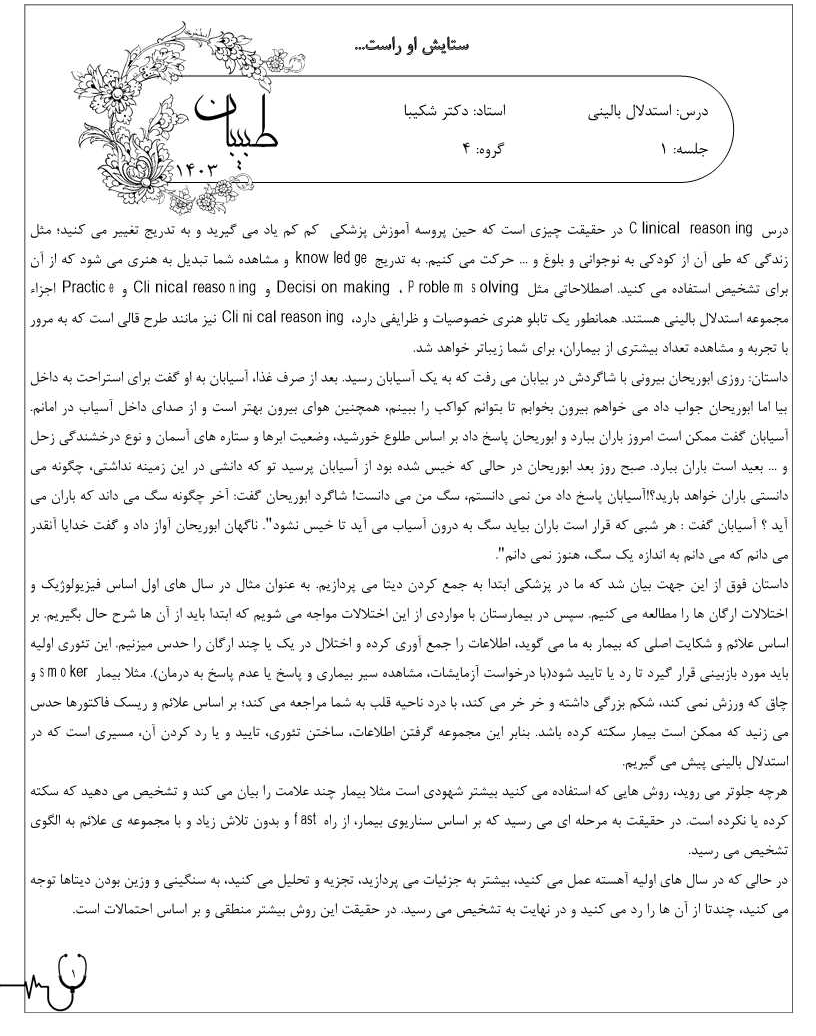 ستایش او راست...
درس: استدلال بالینی
استاد: دکتر شکیبا
جلسه: ۱
گروه: ۴
طبیبان
۱۴۰۳
درس Clinical reasoning در حقیقت چیزی است که حین پروسه آموزش پزشکی کم کم یاد می گیرید و به تدریج تغییر می کنید؛ مثل
زندگی که طی آن از کودکی به نوجوانی و بلوغ و ... حرکت می کنیم. به تدریج knowledge و مشاهده شما تبدیل به هنری می شود که از آن
برای تشخیص استفاده می کنید. اصطلاحاتی مثل Problem solving ، Decision making و Clinical reasoning و Practice اجزاء
مجموعه استدلال بالینی هستند. همانطور یک تابلو هنری خصوصیات و ظرایفی دارد، Clinical reasoning نیز مانند طرح قالی است که به مرور
با تجربه و مشاهده تعداد بیشتری از بیماران، برای شما زیباتر خواهد شد.
داستان: روزی ابوریحان بیرونی با شاگردش در بیابان می رفت که به یک آسیابان رسید. بعد از صرف غذا، آسیابان به او گفت برای استراحت به داخل
بیا اما ابوریحان جواب داد می خواهم بیرون بخوابم تا بتوانم کواکب را ببینم، همچنین هوای بیرون بهتر است و از صدای داخل آسیاب در امانم.
آسیابان گفت ممکن است امروز باران ببارد و ابوریحان پاسخ داد بر اساس طلوع خورشید، وضعیت ابرها و ستاره های آسمان و نوع درخشندگی زحل
و ... بعید است باران ببارد. صبح روز بعد ابوریحان در حالی که خیس شده بود از آسیابان پرسید تو که دانشی در این زمینه نداشتی، چگونه می
دانستی باران خواهد بارید؟!آسیابان پاسخ داد من نمی دانستم، سگ من می دانست! شاگرد ابوریحان گفت: آخر چگونه سگ می داند که باران می
آید ؟ آسیابان گفت : هر شبی که قرار است باران بیاید سگ به درون آسیاب می آید تا خیس نشود". ناگهان ابوریحان آواز داد و گفت خدایا آنقدر
می دانم که می دانم به اندازه یک سگ، هنوز نمی دانم".
داستان فوق از این جهت بیان شد که ما در پزشکی ابتدا به جمع کردن دیتا می پردازیم. به عنوان مثال در سال های اول اساس فیزیولوژیک و
اختلالات ارگان ها را مطالعه می کنیم. سپس در بیمارستان با مواردی از این اختلالات مواجه می شویم که ابتدا باید از آن ها شرح حال بگیریم. بر
اساس علائم و شکایت اصلی که بیمار به ما می گوید، اطلاعات را جمع آوری کرده و اختلال در یک یا چند ارگان را حدس میزنیم. این تئوری اولیه
باید مورد بازبینی قرار گیرد تا رد یا تایید شود(با درخواست آزمایشات، مشاهده سیر بیماری و پاسخ یا عدم پاسخ به درمان). مثلا بیمار smoker و
چاق که ورزش نمی کند، شکم بزرگی داشته و خر خر می کند، با درد ناحیه قلب به شما مراجعه می کند؛ بر اساس علائم و ریسک فاکتورها حدس
می زنید که ممکن است بیمار سکته کرده باشد. بنابر این مجموعه گرفتن اطلاعات، ساختن تئوری، تایید و یا رد کردن آن، مسیری است که در
استدلال بالینی پیش می گیریم.
هرچه جلوتر می روید، روش هایی که استفاده می کنید بیشتر شهودی است مثلا بیمار چند علامت را بیان می کند و تشخیص می دهید که سکته
کرده یا نکرده است. در حقیقت به مرحله ای می رسید که بر اساس سناریوی بیمار، از راه fast و بدون تلاش زیاد و با مجموعه ی علائم به الگوی
تشخیص می رسید.
در حالی که در سال های اولیه آهسته عمل می کنید، بیشتر به جزئیات می پردازید، تجزیه و تحلیل می کنید، به سنگینی و وزین بودن دیتاها توجه
می کنید، چندتا از آن ها را رد می کنید و در نهایت به تشخیص می رسید. در حقیقت این روش بیشتر منطقی و بر اساس احتمالات است.
۱